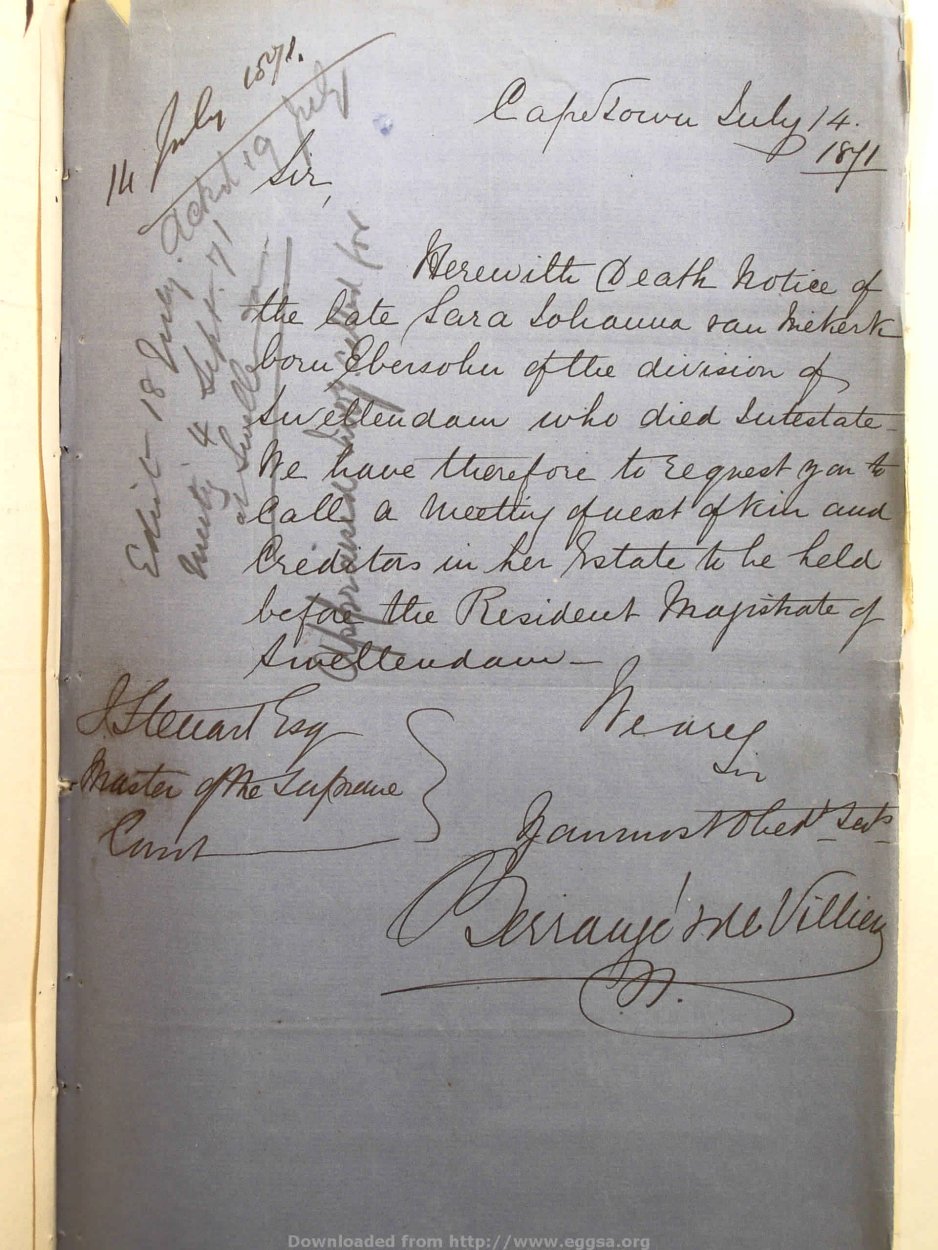 14 July 1871.
Ackd 19 July
Edict 18 July.
Meetg 4 Septr. 71
at Swellendam
Appraised Invty called for
CapeTown July 14.
1871
Sir,
Herewith Death Notice of
the late Sara Johanna van Niekerk
born Ebersohn of the division of
Swellendam who died Intestate -
We have therefore to request you to
Call a Meeting of next of kin and
Creditors in her Estate to be held
before the Resident Magistrate of
Swellendam -
We are
Sir
Your most Obedt Servts
Berrangé & de Villiers
J Steuart Esq
Master of the Supreme
Court
Downloaded from http://www.eggsa.org